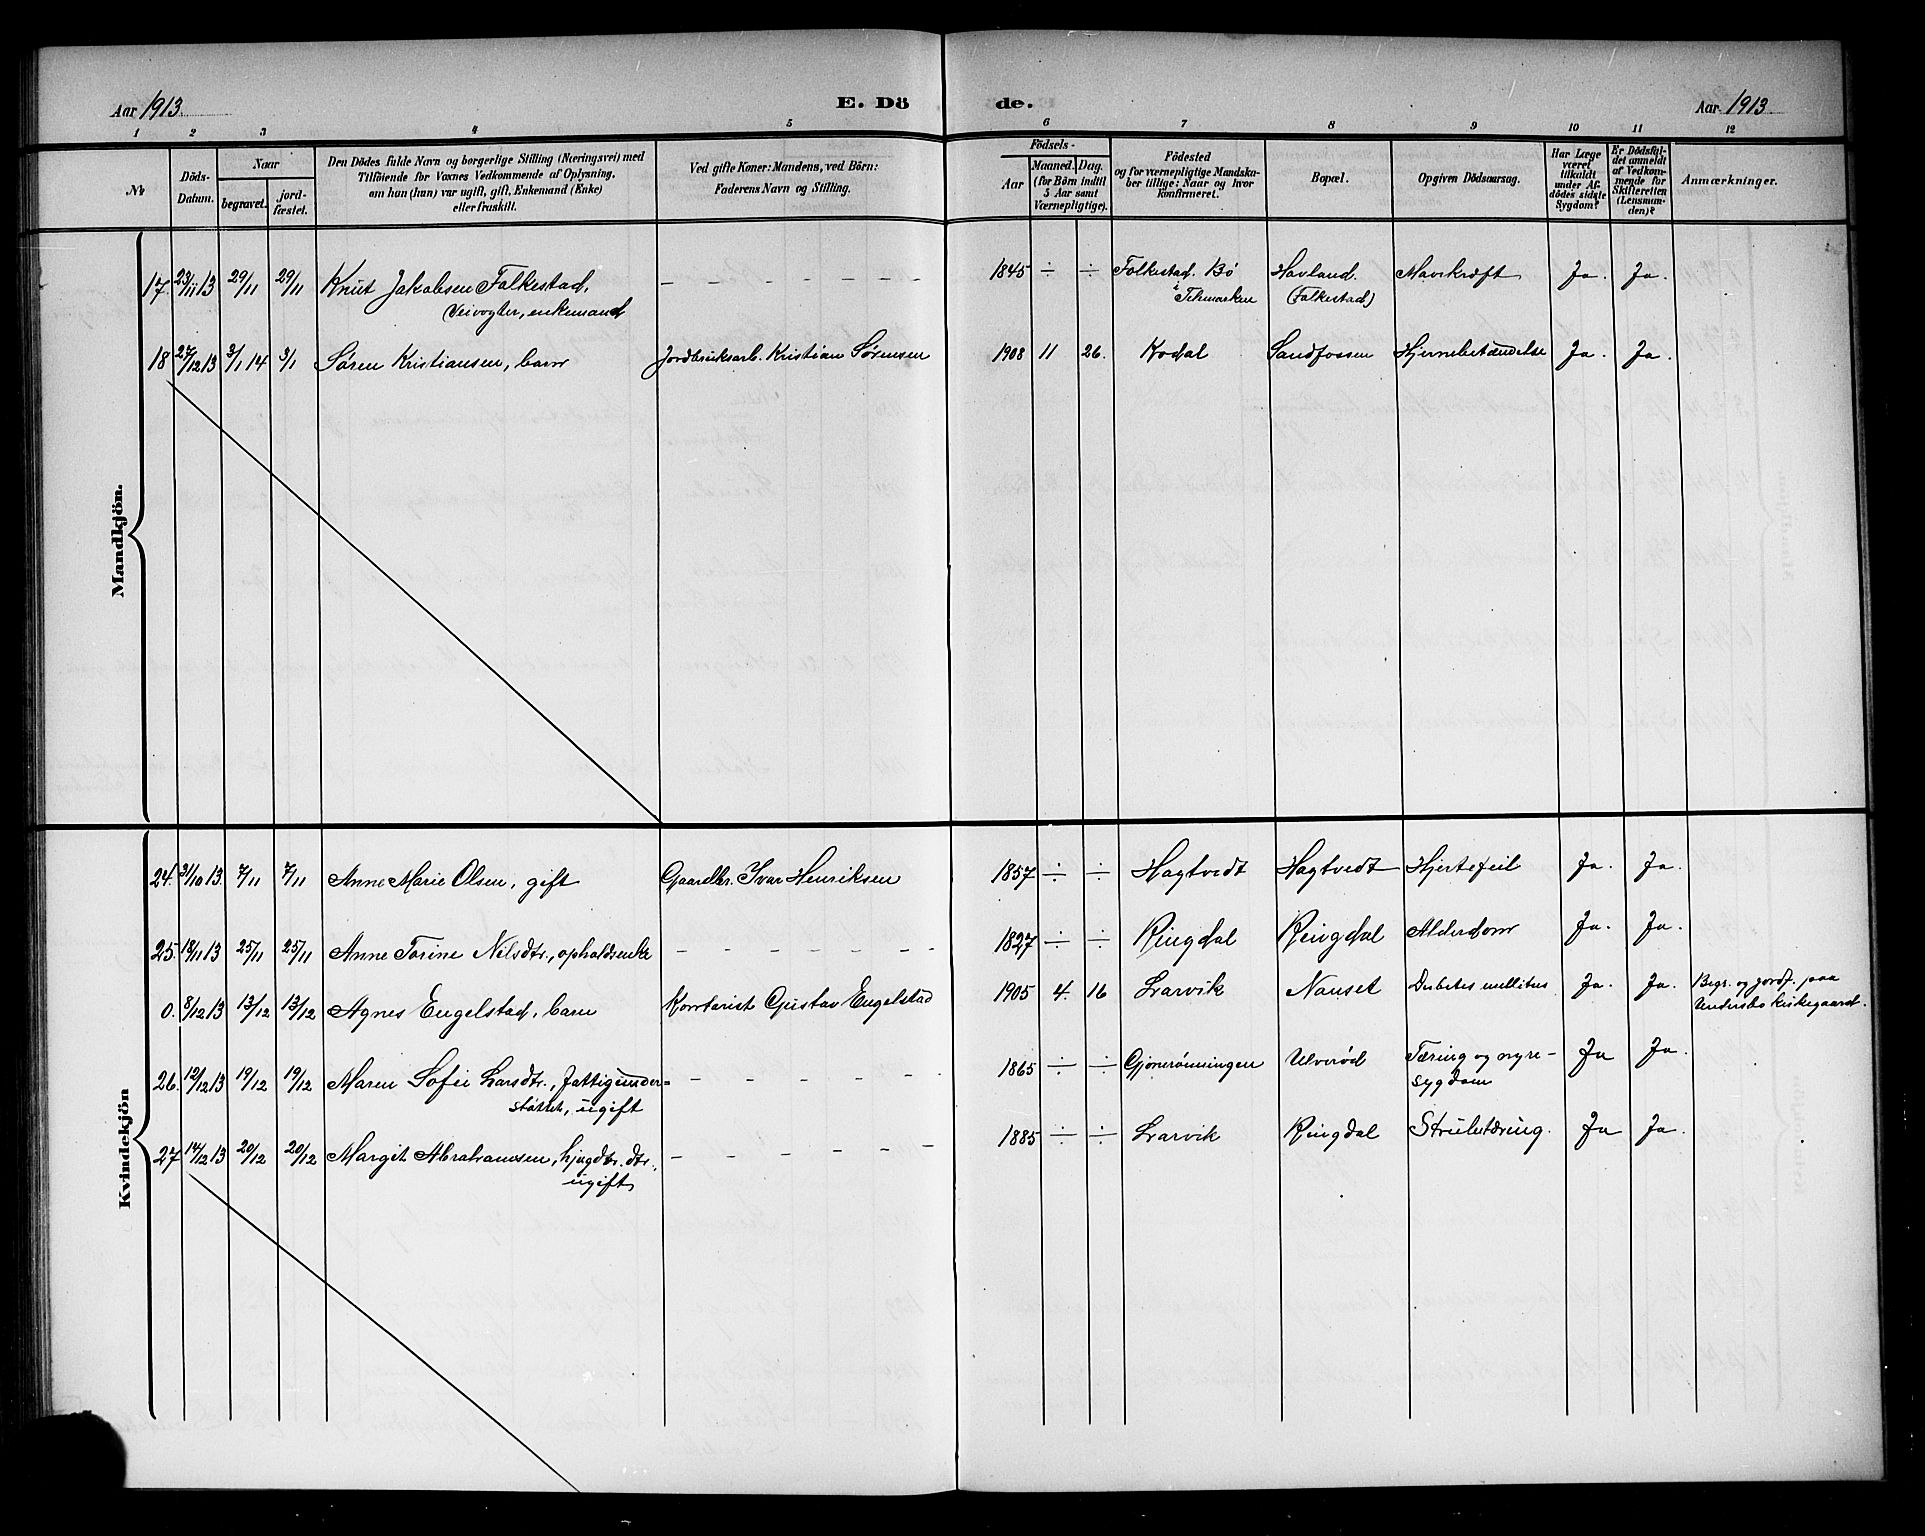 Aar 1913
E. Dö de.
Aar 1913
1 2 3 4 5 6 7 8 9 10 11 12
No
Döds-Datum.
Naar
begravet.
jord-fæstet.
Den Dödes fulde Navn og borgerlige Stilling (Næringsvei) med
Tilföiende for Voxnes Vedkommende af Oplysning,
om han (hun) var ugift, gift, Enkemand (Enke)
eller fraskilt.
Ved gifte Koner: Mandens, ved Börn:
Faderens Navn og Stilling.
Födsels-
Aar
Maaned. Dag.
(for Börn indtil
5 Aar samt
Værnepligtige).
Födested
og for værnepligtige Mandska-
ber tillige: Naar og hvor
konfirmeret.
Bopæl.
Opgiven Dödsaarsag.
Har Læge
været
tilkaldt
under Af-
dödes sidste
Sygdom?
Er Dödsfal-
det anmeldt
af Vedkom-
mende for
Skifteretten
(Lensman-
den)?
Anmærkninger.
Mandkjön.
17. 23/11 13 29/11 29/11 Knut Jakobsen Falkestad, – – – – – – 1845 ÷ ÷ Folkestad. Bö Havland. Mavekræft Ja. Ja.
Veivogter, enkemand i Telemarken (Falkestad)
18 27/12 13 3/1 14 3/1 Søren Kristiansen, barn Jordbruksarb. Kristian Sørensen 1908 11 26. Kodal Sandfossen Hjernebetændelse Ja. Ja.
Kvindekjön
24. 31/10 13. 7/11 7/11 Anne Marie Olsen, gift Gaardbr. Ivar Henriksen 1857 ÷ ÷ Hagtvedt Hagtvedt Hjertefeil Ja. Ja.
25. 18/11 13 25/11 25/11 Anne Torine Nilsdtr., opholdsenke – – – – – – 1827 ÷ ÷ Ringdal Ringdal Alderdom Ja. Ja.
0. 8/12 13 13/12 13/12 Agnes Engelstad, barn Kontorist Gustav Engelstad 1905 4. 16 Larvik Nauset Diabetes mellitus Ja. Ja. Begr. og jordf. paa
Undersbo kirkegaard.
26. 12/12 13 19/12 19/12 Maren Sofie Larsdtr., fattigunder= – – – – – 1865 ÷ ÷ Gjønerønningen Ulverød Tæring og nyre-
støttet, ugift sygdom Ja Ja.
27 14/12 13 20/12 20/12 Margit Abrahamsen, hjugdtr. dtr., – – – – – – 1885 ÷ ÷ Larvik Ringdal Strubetæring. Ja Ja.
ugift